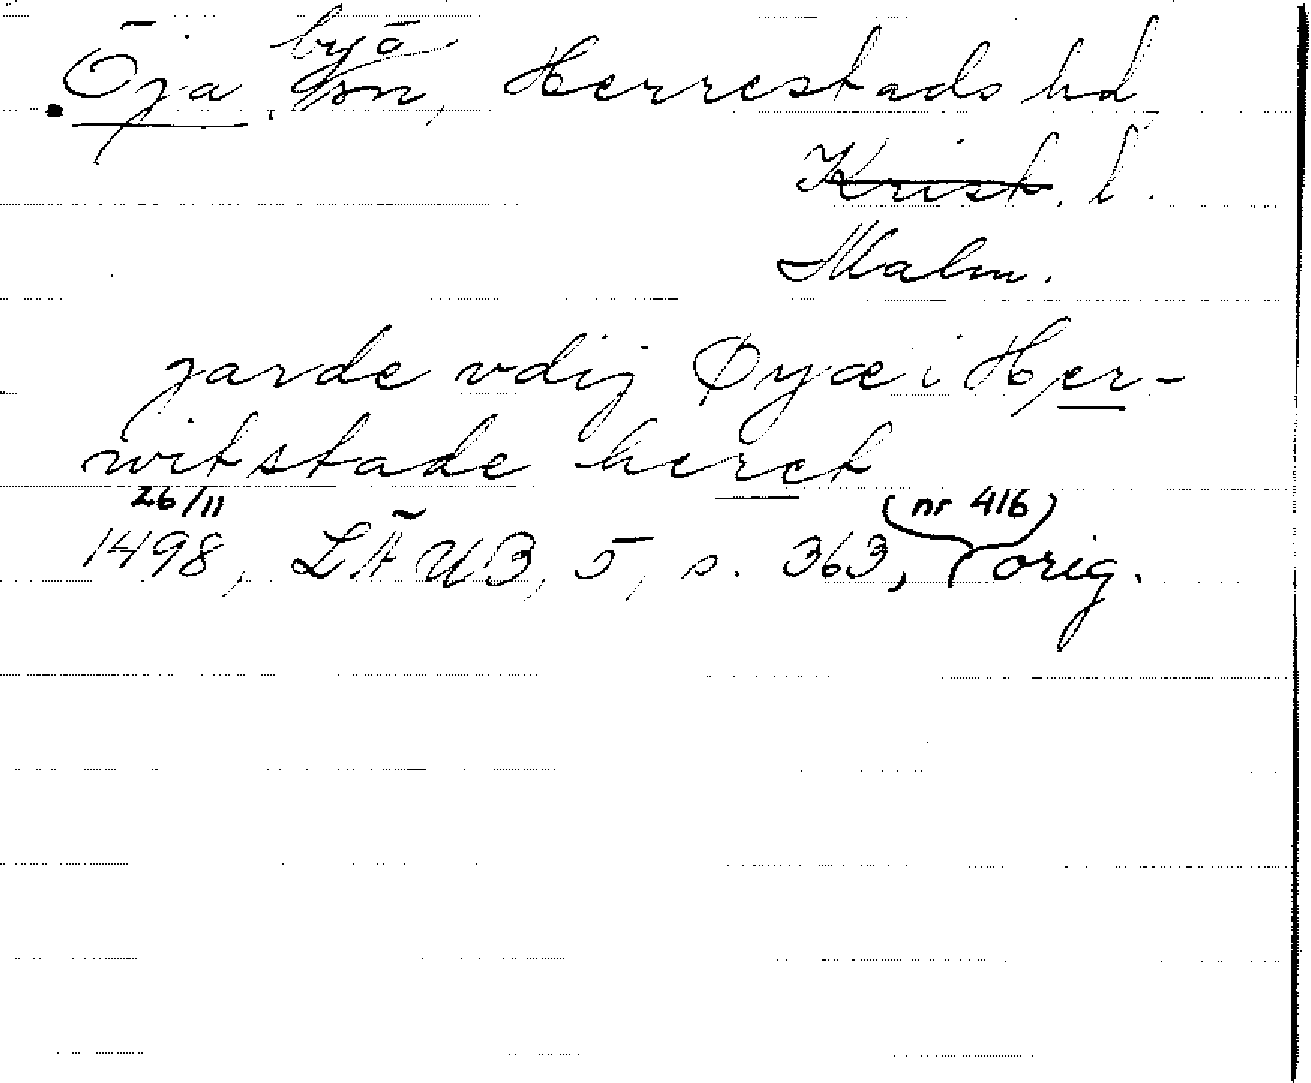 Öja by o sn, Herrestads hd
Krist. l.
Malm.
garde vdij Øyæ i Her-
witstade heret
26/11
1498, LÄUB, 5, s. 363, (nr 416) orig.